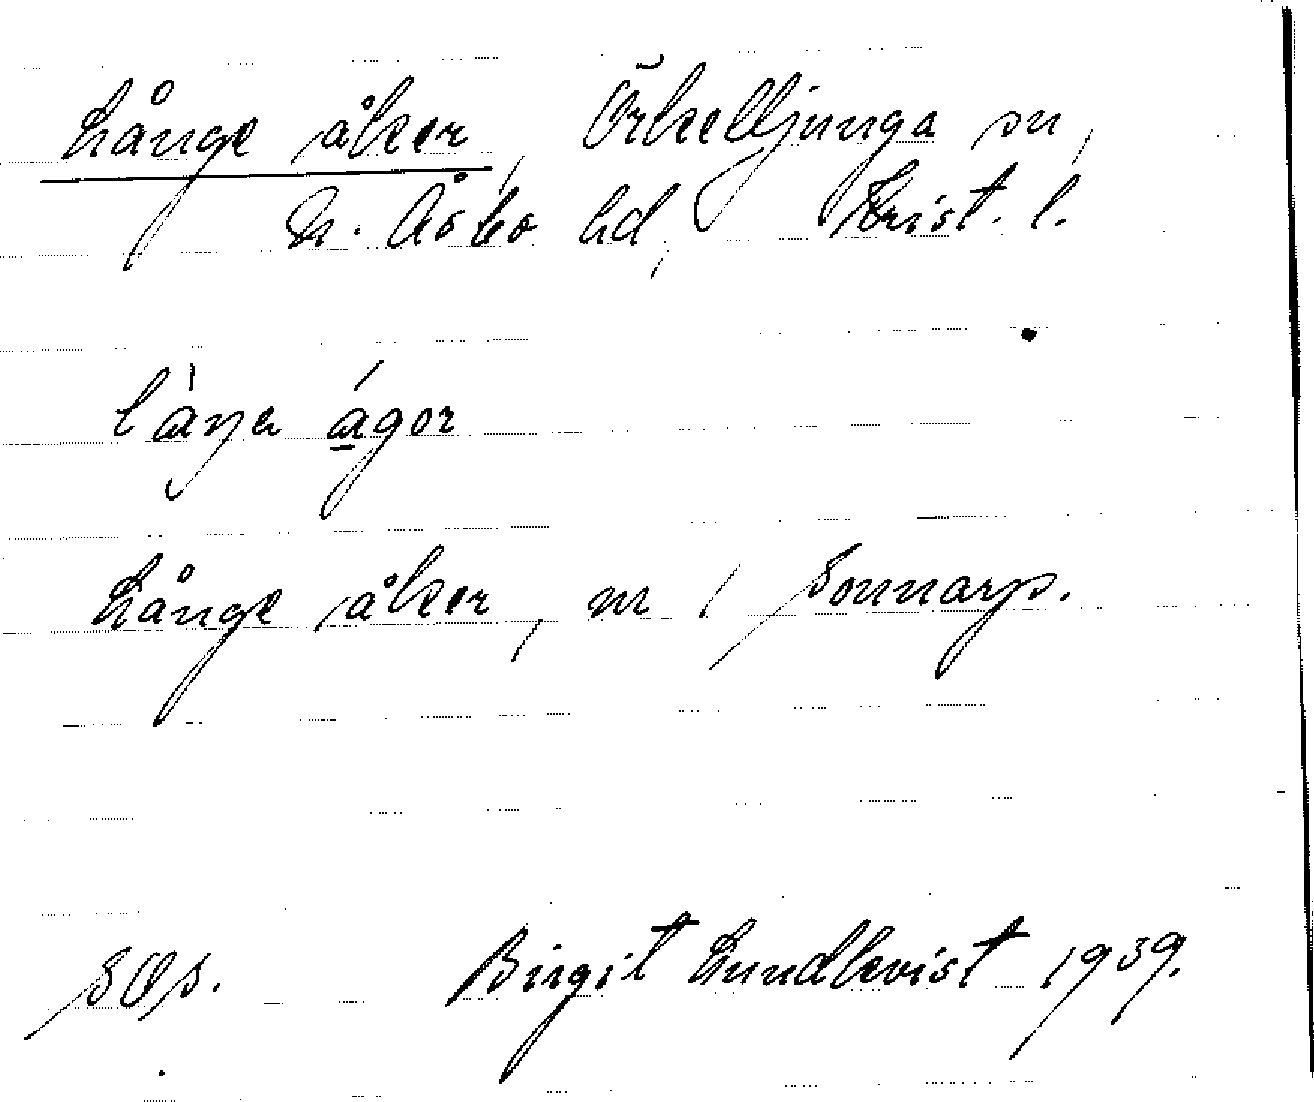 Långe åker, Örkelljunga sn,
N. Åsbo hd, Krist. l.
låŋa ågor
Långe åker, nr 1 Sonnarp.
SOS. Birgit Lundkvist 1939.